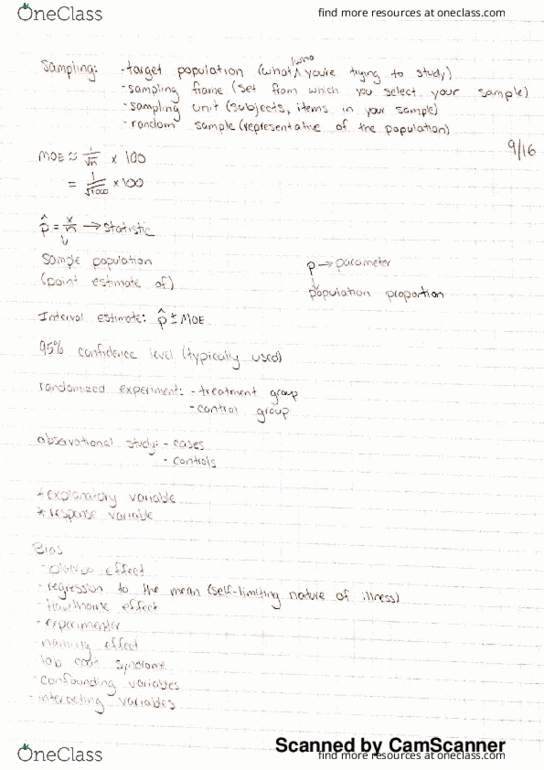 OneClass
find more resources at oneclass.com
who
Sampling: -target population (what^ you're trying to study)
-sampling frame (set from which you select your sample)
-sampling unit (subjects, items in your sample)
-random sample (representative of the population)
9/16
MOE ≈ 1/√n x 100
= 1/√1000 x 100
p̂ = x/n → statistic
sample population
p → parameter
(point estimate of)
population proportion
Interval estimate: p̂ ± MOE
95% confidence level (typically used)
randomized experiment: - treatment group
- control group
observational study: - cases
- controls
* explanatory variable
* response variable
Bias
- placebo effect
- regression to the mean (self-limiting nature of illness)
- Hawthorne effect
- experimenter
- effect
- lab coat syndrome
- confounding variables
- interacting variables
Scanned by CamScanner
OneClass
find more resources at oneclass.com